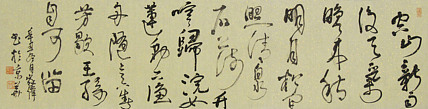 空山新雨
後天氣
晚來秋
明月松間
照清泉
石上流竹
喧歸浣女
蓮動下漁
舟隨意春
芳歇王孫
自可留